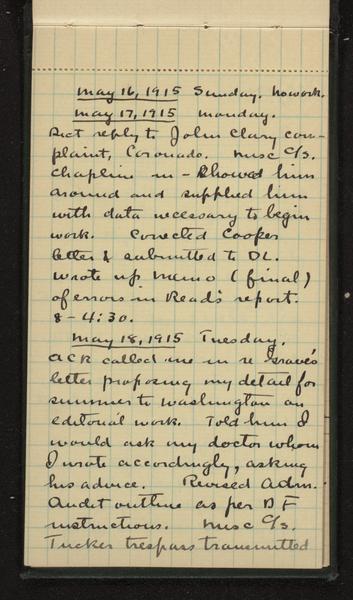 May 16, 1915 Sunday. No work.
May 17, 1915 Monday.
Dict reply to John Clary com-
plaint, Coronado. Misc C/s.
Chapline in - Showed him
around and supplied him
with data necessary to begin
work. Corrected Cooper
letter & submitted to DL.
Wrote up memo (final)
of errors in Read's report.
8-4:30.
May 18, 1915 Tuesday.
ACR called me in re Graves
letter proposing my detail for
summer to Washington on
editorial work. Told him I
would ask my doctor whom
I wrote accordingly, asking
his advice. Revised Adm.
Audit outline as per DF
instructions. Misc C/s.
Tucker trespass transmitted